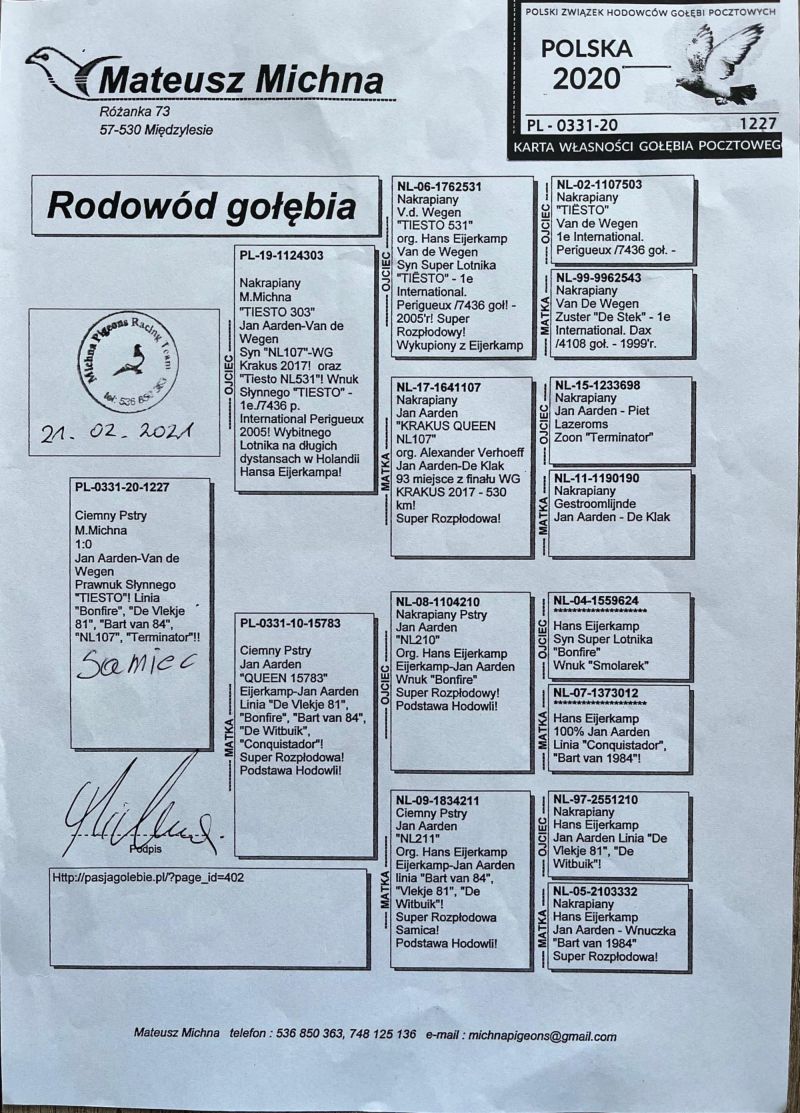 Mateusz Michna
Różanka 73
57-530 Międzylesie
POLSKI ZWIĄZEK HODOWCÓW GOŁĘBI POCZTOWYCH
POLSKA
2020
PL - 0331-20 1227
KARTA WŁASNOŚCI GOŁĘBIA POCZTOWEG
Rodowód gołębia
Michna Pigeons Racing Team
tel: 536 850 363
21. 02. 2021
PL-0331-20-1227
Ciemny Pstry
M.Michna
1:0
Jan Aarden-Van de
Wegen
Prawnuk Słynnego
"TIESTO"! Linia
"Bonfire", "De Vlekje
81", "Bart van 84",
"NL107", "Terminator"!!
Samiec
Podpis
Http://pasjagolebie.pl/?page_id=402
OJCIEC
PL-19-1124303
Nakrapiany
M.Michna
"TIESTO 303"
Jan Aarden-Van de
Wegen
Syn "NL107"-WG
Krakus 2017! oraz
"Tiesto NL531"! Wnuk
Słynnego "TIESTO" -
1e./7436 p.
International Perigueux
2005! Wybitnego
Lotnika na długich
dystansach w Holandii
Hansa Eijerkampa!
MATKA
PL-0331-10-15783
Ciemny Pstry
Jan Aarden
"QUEEN 15783"
Eijerkamp-Jan Aarden
Linia "De Vlekje 81",
"Bonfire", "Bart van 84",
"De Witbuik",
"Conquistador"!
Super Rozpłodowa!
Podstawa Hodowli!
OJCIEC
NL-06-1762531
Nakrapiany
V.d. Wegen
"TIESTO 531"
org. Hans Eijerkamp
Van de Wegen
Syn Super Lotnika
"TIËSTO" - 1e
International.
Perigueux /7436 goł! -
2005'r! Super
Rozpłodowy!
Wykupiony z Eijerkamp
MATKA
NL-17-1641107
Nakrapiany
Jan Aarden
"KRAKUS QUEEN
NL107"
org. Alexander Verhoeff
Jan Aarden-De Klak
93 miejsce z finału WG
KRAKUS 2017 - 530
km!
Super Rozpłodowa!
OJCIEC
NL-08-1104210
Nakrapiany Pstry
Jan Aarden
"NL210"
Org. Hans Eijerkamp
Eijerkamp-Jan Aarden
Wnuk "Bonfire"
Super Rozpłodowy!
Podstawa Howodli!
MATKA
NL-09-1834211
Ciemny Pstry
Jan Aarden
"NL211"
Org. Hans Eijerkamp
Eijerkamp-Jan Aarden
linia "Bart van 84",
"Vlekje 81", "De
Witbuik"!
Super Rozpłodowa
Samica!
Podstawa Howodli!
OJCIEC
NL-02-1107503
Nakrapiany
"TIËSTO"
Van de Wegen
1e International.
Perigueux /7436 goł. -
MATKA
NL-99-9962543
Nakrapiany
Van De Wegen
Zuster "De Stek" - 1e
International. Dax
/4108 goł. - 1999'r.
OJCIEC
NL-15-1233698
Nakrapiany
Jan Aarden - Piet
Lazeroms
Zoon "Terminator"
MATKA
NL-11-1190190
Nakrapiany
Gestroomlijnde
Jan Aarden - De Klak
OJCIEC
NL-04-1559624
********************
Hans Eijerkamp
Syn Super Lotnika
"Bonfire"
Wnuk "Smolarek"
MATKA
NL-07-1373012
********************
Hans Eijerkamp
100% Jan Aarden
Linia "Conquistador",
"Bart van 1984"!
OJCIEC
NL-97-2551210
Nakrapiany
Hans Eijerkamp
Jan Aarden Linia "De
Vlekje 81", "De
Witbuik"!
MATKA
NL-05-2103332
Nakrapiany
Hans Eijerkamp
Jan Aarden - Wnuczka
"Bart van 1984"
Super Rozpłodowa!
Mateusz Michna telefon : 536 850 363, 748 125 136 e-mail : michnapigeons@gmail.com